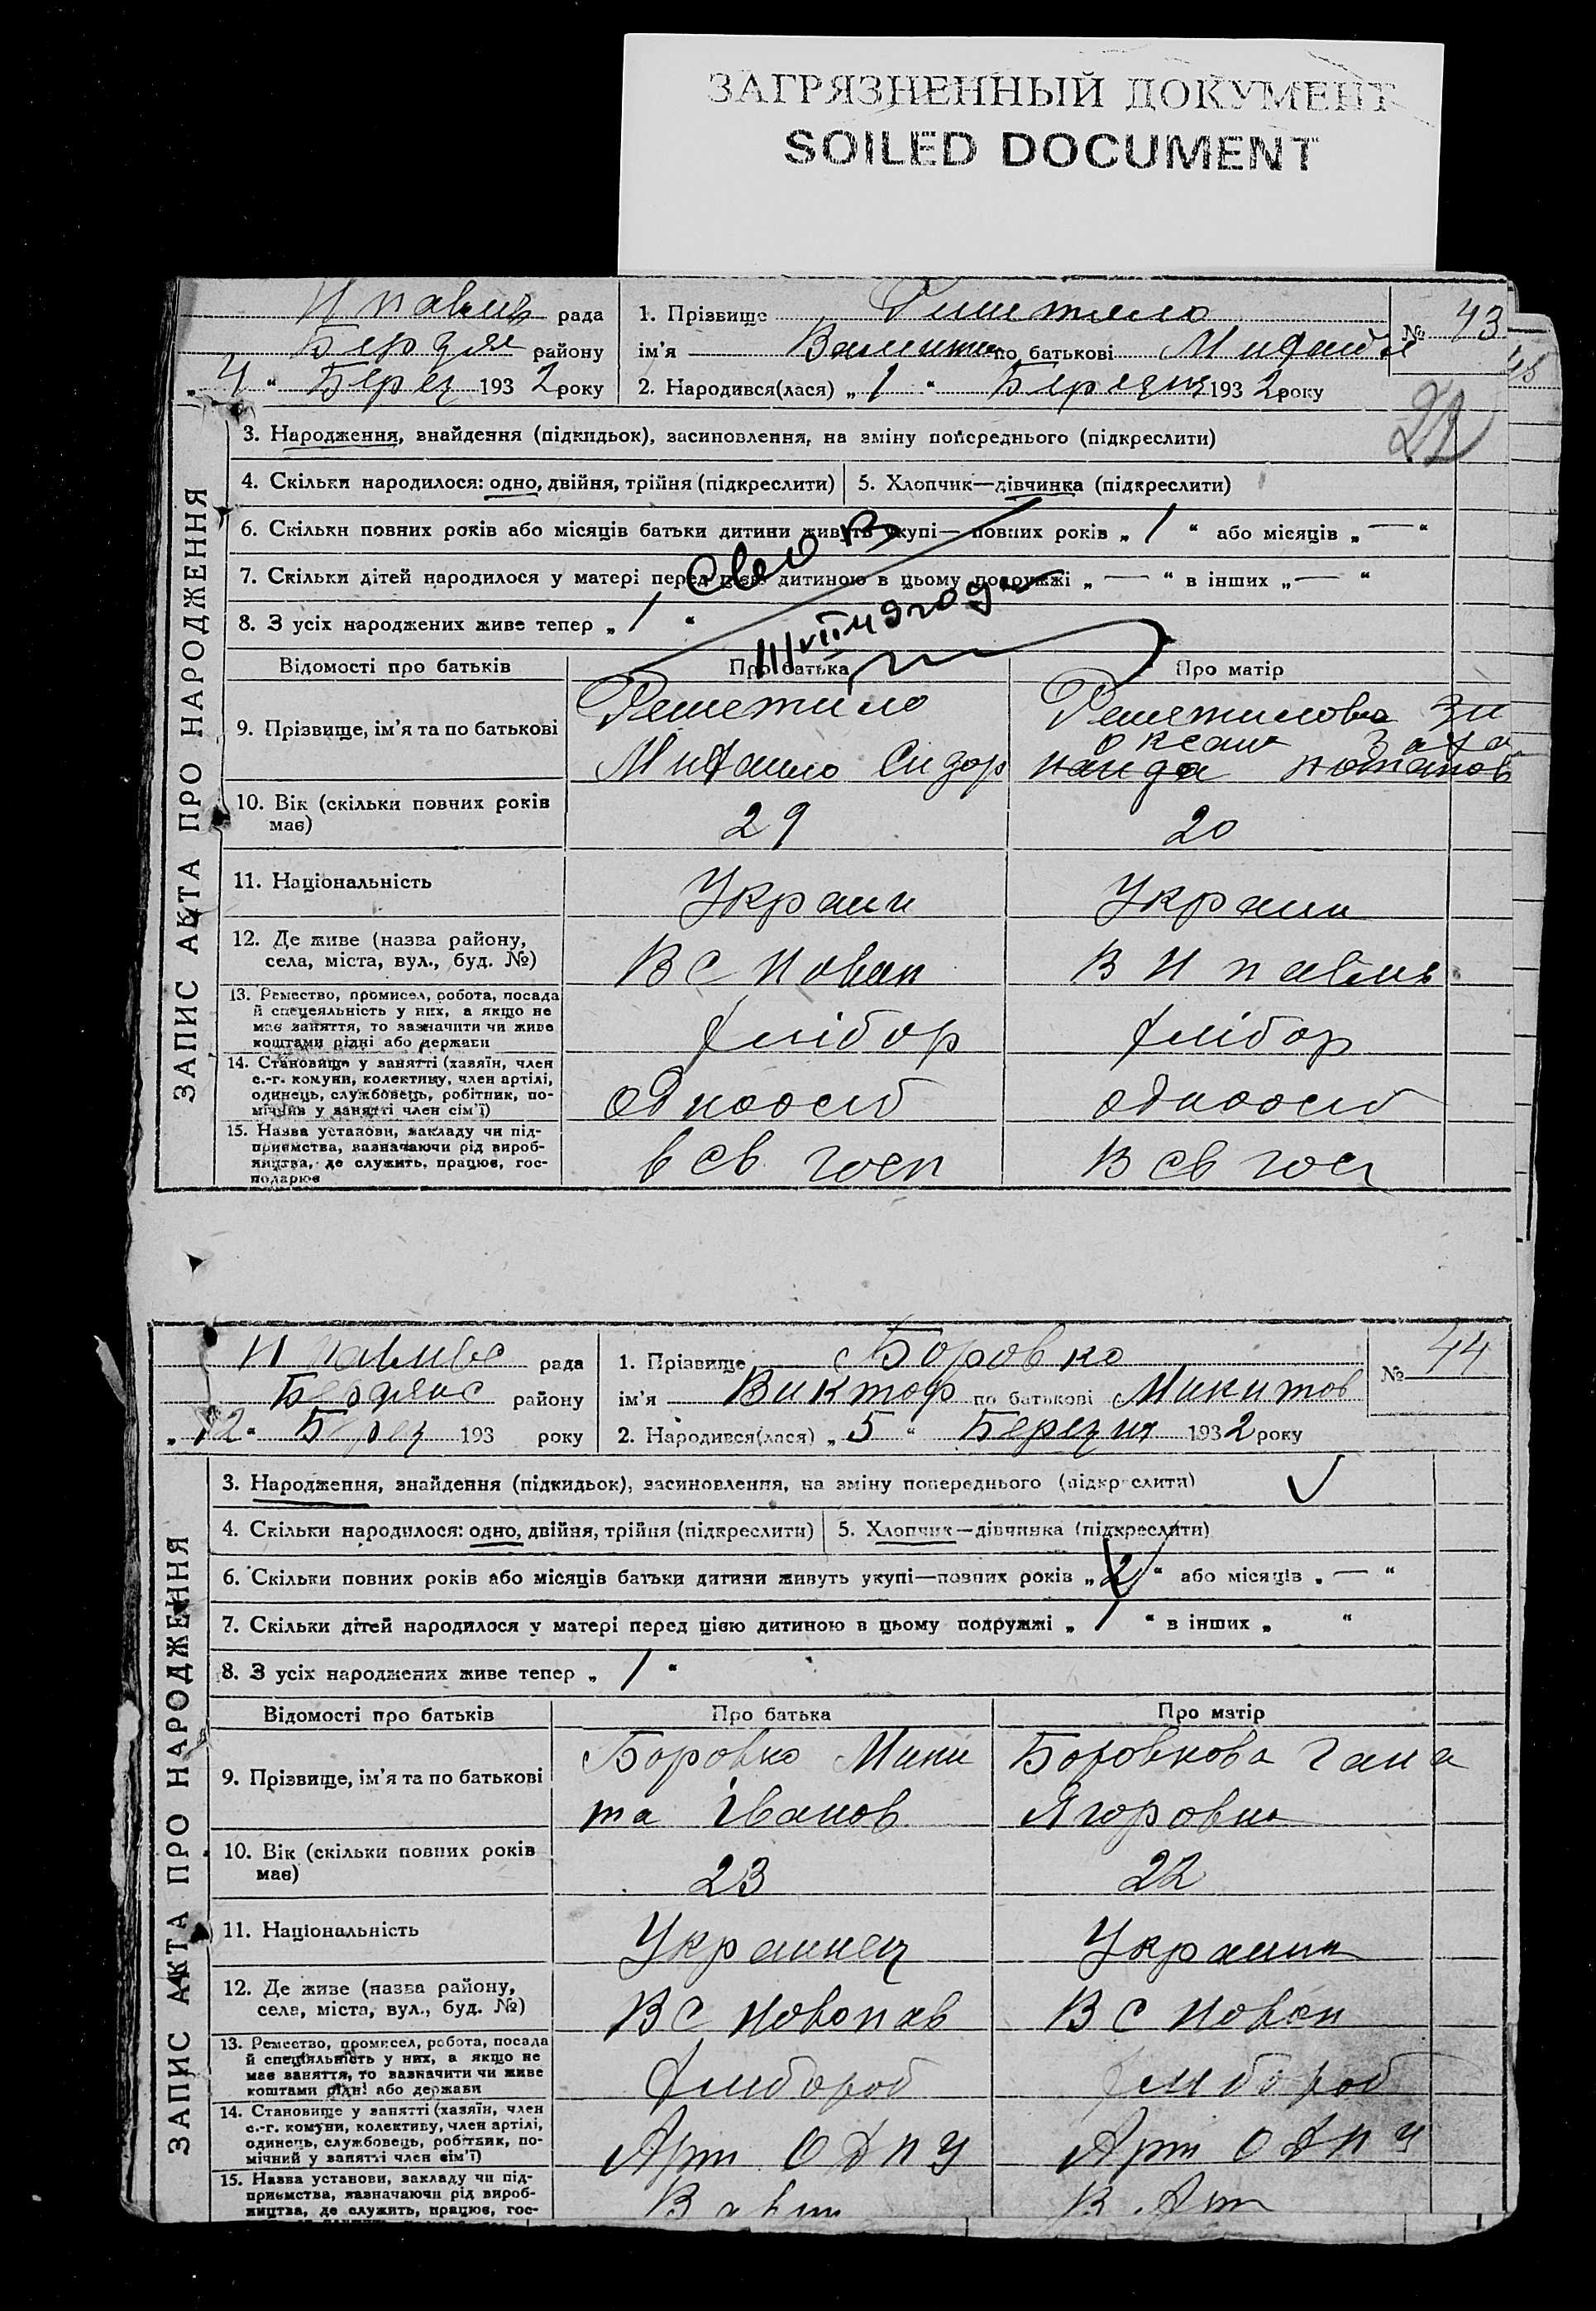 ЗАГРЯЗНЕННЫЙ ДОКУМЕНТ
SOILED DOCUMENT
рада
району
„ 4 “ Берез 193 2 року
1. Прізвище
ім'я по батькові
2. Народився(лася) „ 1 “ Березня 193 2 року
№ 43
ЗАПИС АКТА ПРО НАРОДЖЕННЯ
3. Народження, знайдення (підкидьок), засиновлення, на зміну попереднього (підкреслити)
4. Скільки народилося: одно, двійня, трійня (підкреслити)
5. Хлопчик—дівчинка (підкреслити)
6. Скільки повних років або місяців батьки дитини живуть укупі— повних років „ 1 “ або місяців „ — “
7. Скільки дітей народилося у матері перед цією дитиною в цьому подружжі „ — “ в інших „ — “
8. З усіх народжених живе тепер „ 1 “
Відомості про батьків
Про батька
Про матір
9. Прізвище, ім'я та по батькові
Решетило
Михаило Сидор
Решетилова Зи
наида потапов
10. Вік (скільки повних років має)
29
20
11. Національність
Украин
Украин
12. Де живе (назва району, села, міста, вул., буд. №)
В С Новоп
13. Ремество, промисел, робота, посада
й спеціяльність у них, а якщо не
має заняття, то зазначити чи живе
коштами рідні або держави
хлібор
хлібор
14. Становище у занятті (хазяїн, член
с.-г. комуни, колективу, член артілі,
одинець, службовець, робітник, по-
мічний у занятті член сім'ї)
одноосіб
одноосіб
15. Назва установи, закладу чи під-
приємства, вазначаючи рід вироб-
ництва, де служить, працює, гос-
подарює
в св госп
В св госп
рада
Бердянс району
„ 12 “ Берез 193 року
1. Прізвище Боровко
ім'я Виктор по батькові Микитов
2. Народився(лася) „ 5 “ Березня 193 2 року
№ 44
ЗАПИС АКТА ПРО НАРОДЖЕННЯ
3. Народження, знайдення (підкидьок), засиновлення, на зміну попереднього (підкреслити)
4. Скільки народилося: одно, двійня, трійня (підкреслити)
5. Хлопчик—дівчинка (підкреслити)
6. Скільки повних років або місяців батьки дитини живуть укупі—повних років „ 2 “ або місяців „ — “
7. Скільки дітей народилося у матері перед цією дитиною в цьому подружжі „ 1 “ в інших „ “
8. З усіх народжених живе тепер „ 1 “
Відомості про батьків
Про батька
Про матір
9. Прізвище, ім'я та по батькові
Боровко Мики
та Іванов
Боровкова Гана
Ягоровна
10. Вік (скільки повних років має)
23
22
11. Національність
Украинец
Украинк
12. Де живе (назва району, села, міста, вул., буд. №)
В С Новопав
В С Новоп
13. Ремество, промисел, робота, посада
й спеціяльність у них, а якщо не
має заняття, то вазначити чи живе
коштами рідні або держави
хлибороб
хлибороб
14. Становище у занятті (хазяїн, член
с.-г. комуни, колективу, член артілі,
одинець, службовець, робітник, по-
мічний у занятті член сім'ї)
Арт ОДПУ
Арт ОДПУ
15. Назва установи, закладу чи під-
приємства, вазначаючи рід вироб-
ництва, де служить, працює, гос-
В Арт